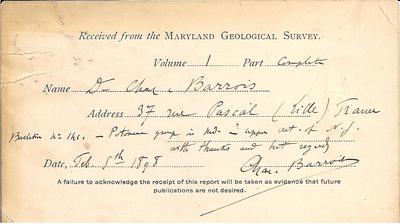 Received from the MARYLAND GEOLOGICAL SURVEY.
Volume 1 Part Complete
Name Dr Chas. Barrois
Address 37 rue Pascal (Lille) France
Bulletin No 141. - Potomac group in Md. - upper cret. of N.J.
with thanks and best regards
Date, Feb. 5th 1898 Chas. Barrois
A failure to acknowledge the receipt of this report will be taken as evidence that future
publications are not desired.